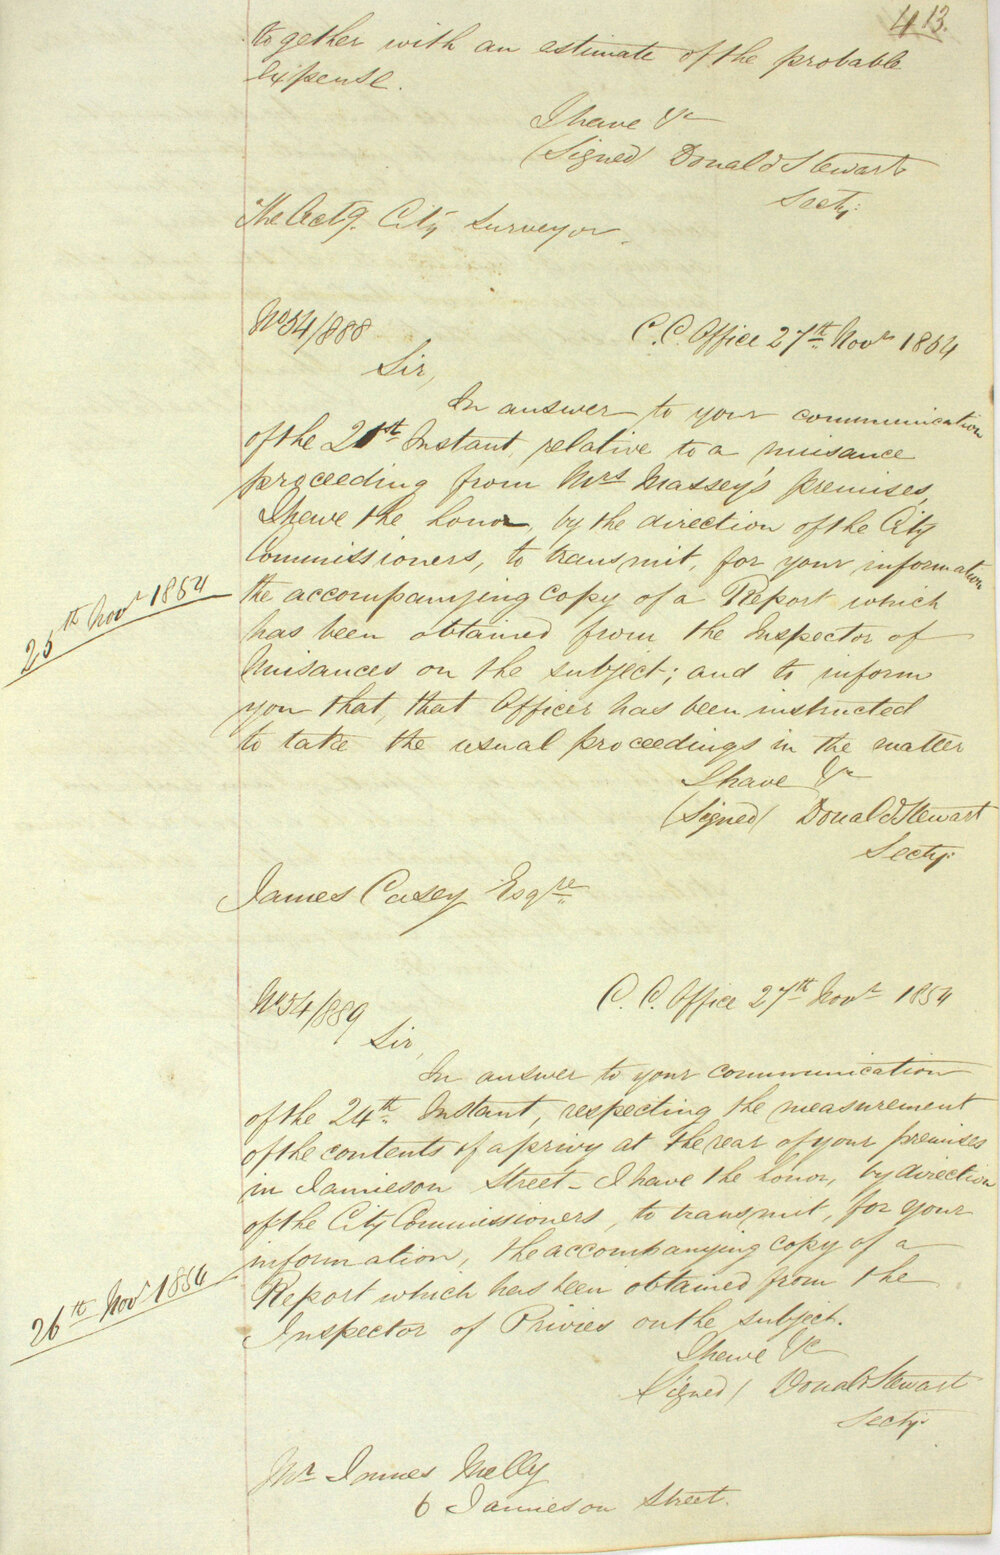 413.
together with an estimate of the probable
expense.
I have &c
(Signed) Donald Stewart
Secty:
The Actg. City Surveyor.
No 54/888
C. C. Office 27th Novr 1854
Sir,
In answer to your communication
of the 21st Instant, relative to a nuisance
proceeding from Mrs Massey's premises,
I have the honor, by the direction of the City
Commissioners, to transmit, for your information
25th Novr 1854
the accompanying Copy of a Report which
has been obtained from the Inspector of
Nuisances on the subject; and to inform
you that, that Officer has been instructed
to take the usual proceedings in the matter
I have &c
(Signed) Donald Stewart
Secty:
James Casey Esqre
No 54/889
C. C. Office 27th Novr 1854
Sir,
In answer to your communication
of the 24th Instant, respecting the measurement
of the contents of a privy at the rear of your premises
in Jamieson Street - I have the honor, by direction
of the City Commissioners, to transmit, for your
information, the accompanying copy of a
26th Novr 1854
Report which has been obtained from the
Inspector of Privies on the subject.
I have &c
(Signed) Donald Stewart
Secty:
Mr Innes
6 Jamieson Street.